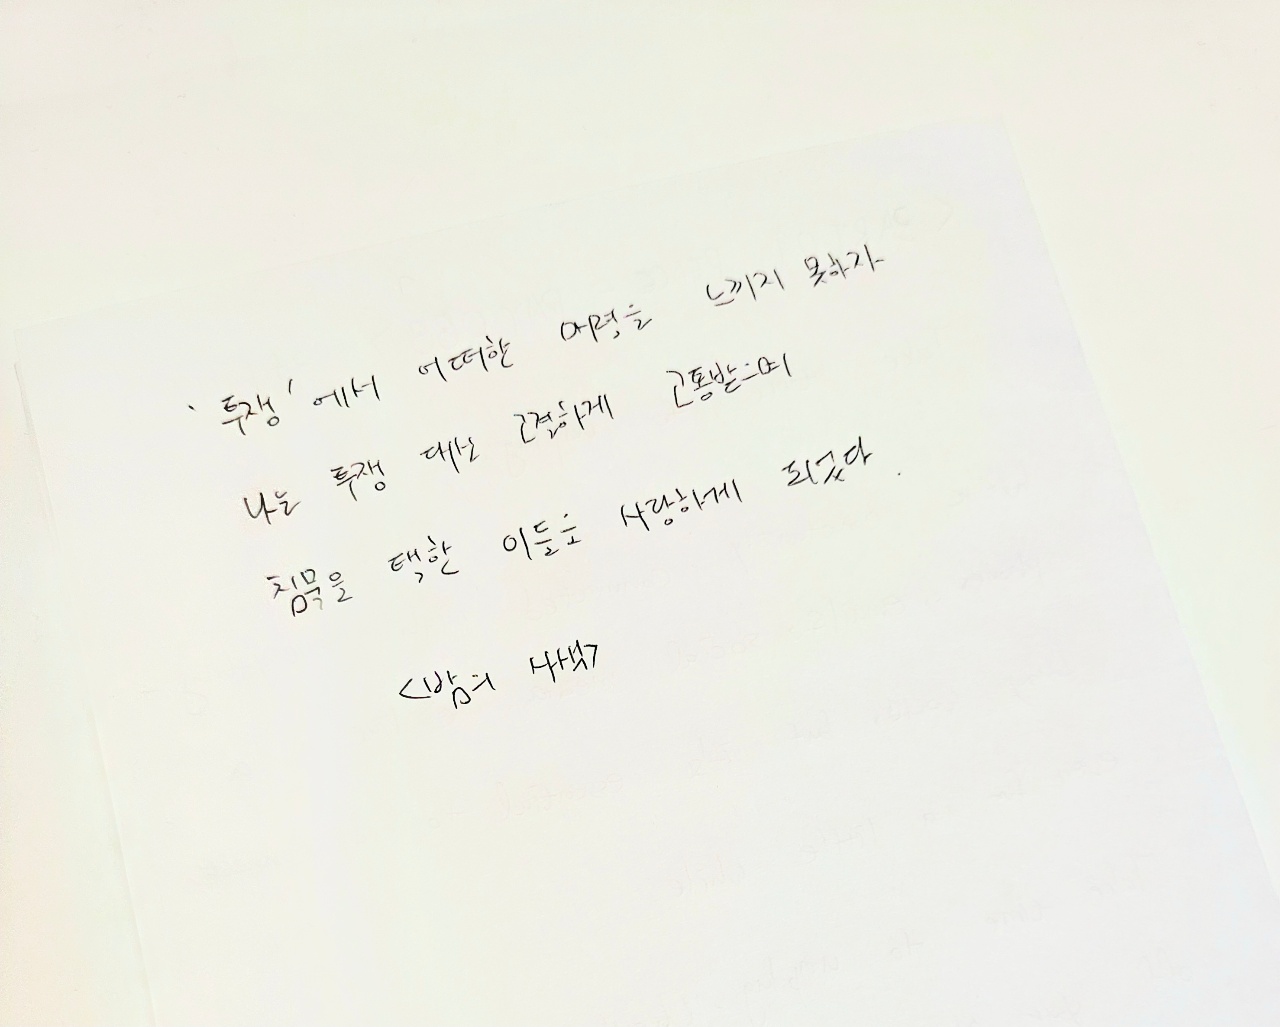 '투쟁'에서 어떠한 매력을 느끼지 못하자
나는 투쟁 대신 고결하게 고통받으며
침묵을 택한 이들을 사랑하게 되었다.
<밤의 사색>